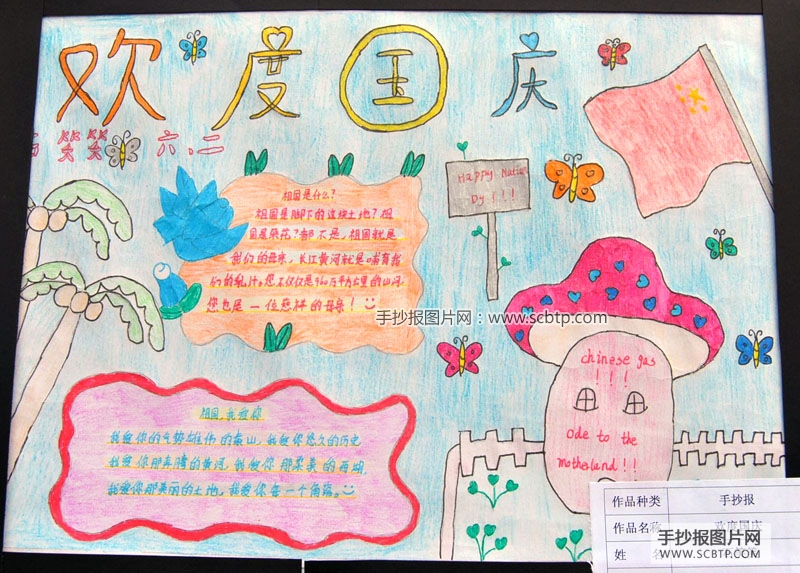 欢度国庆
六、二
祖国是什么?
祖国是脚下的这块土地?祖
国是葵花?都不是,祖国就是
我们的母亲,长江黄河就是哺育我
们的乳汁。您不仅仅是960万平方公里的山河
您也是一位慈祥的母亲!
Happy Nation
Dy!!!
手抄报图片网:www.scbtp.com
chinese gas
!!!
ode to the
motherland!!
祖国,我爱你
我爱你的气势雄伟的泰山,我爱你悠久的历史
我爱你那奔腾的黄河,我爱你那柔美的西湖,
我爱你那美丽的土地,我爱你每一个角落。
作品种类 手抄报
作品名称 欢度国庆
姓 名
手抄报图片网
WWW.SCBTP.COM